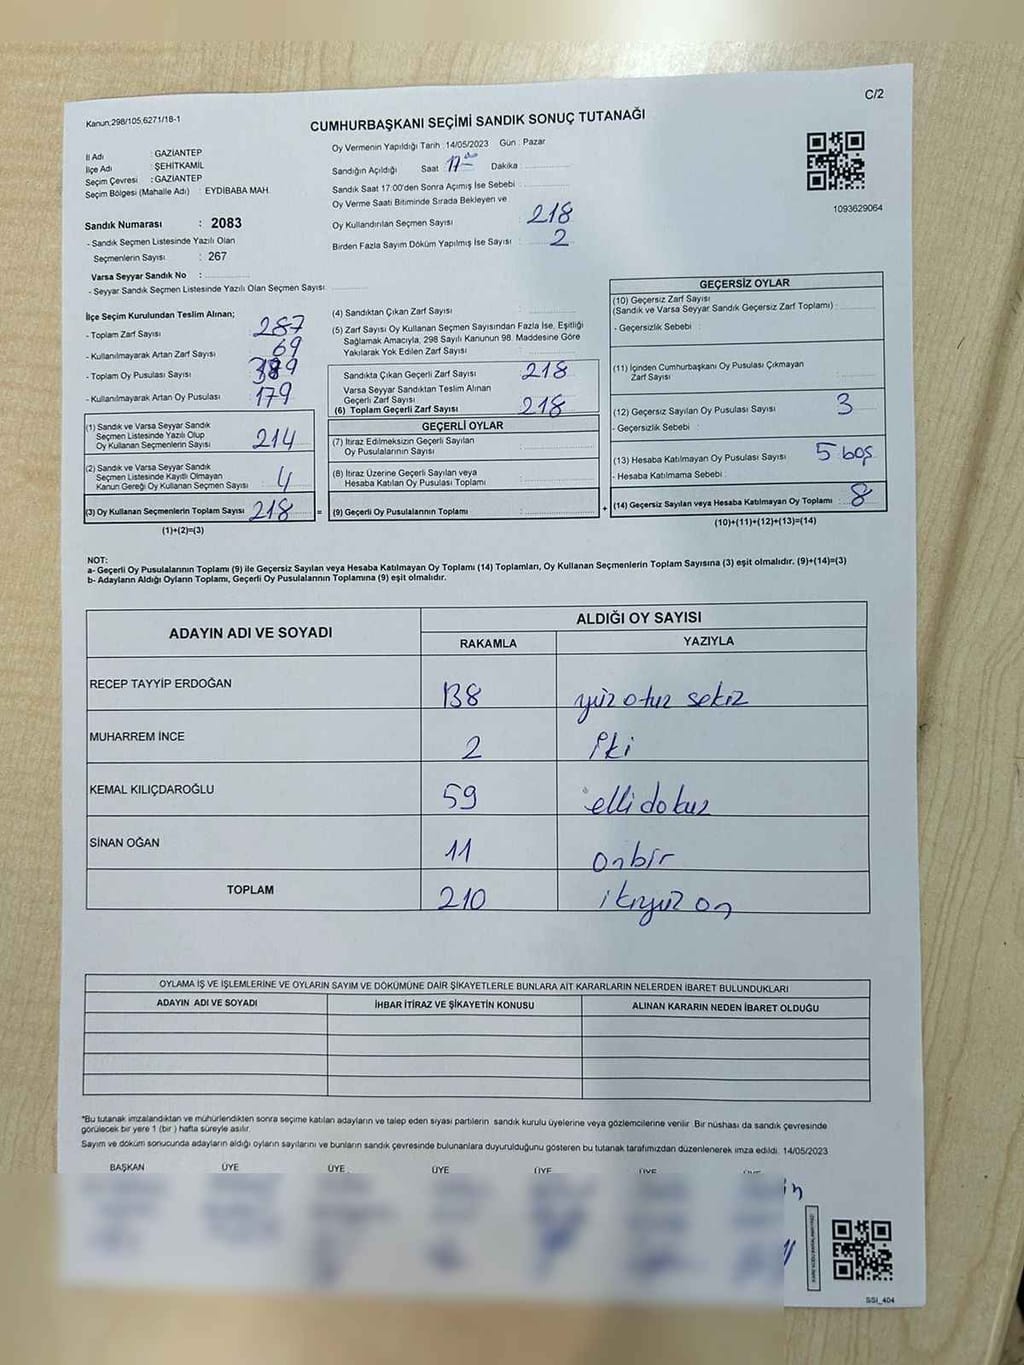 Kanun;298/105,6271/18-1
C/2
CUMHURBAŞKANI SEÇİMİ SANDIK SONUÇ TUTANAĞI
İl Adı : GAZİANTEP
İlçe Adı : ŞEHİTKAMİL
Seçim Çevresi : GAZİANTEP
Seçim Bölgesi (Mahalle Adı) : EYDİBABA MAH.
Oy Vermenin Yapıldığı Tarih : 14/05/2023 Gün : Pazar
Sandığın Açıldığı Saat 17 Dakika
Sandık Saat 17:00'den Sonra Açımış İse Sebebi :
Oy Verme Saati Bitiminde Sırada Bekleyen ve
Oy Kullandırılan Seçmen Sayısı 218
Birden Fazla Sayım Döküm Yapılmış İse Sayısı : 2
1093629064
Sandık Numarası : 2083
- Sandık Seçmen Listesinde Yazılı Olan
Seçmenlerin Sayısı : 267
Varsa Seyyar Sandık No :
- Seyyar Sandık Seçmen Listesinde Yazılı Olan Seçmen Sayısı :
İlçe Seçim Kurulundan Teslim Alınan;
- Toplam Zarf Sayısı : 287
- Kullanılmayarak Artan Zarf Sayısı : 69
- Toplam Oy Pusulası Sayısı :
- Kullanılmayarak Artan Oy Pusulası : 179
(1) Sandık ve Varsa Seyyar Sandık
Seçmen Listesinde Yazılı Olup
Oy Kullanan Seçmenlerin Sayısı : 214
(2) Sandık ve Varsa Seyyar Sandık
Seçmen Listesinde Kayıtlı Olmayan
Kanun Gereği Oy Kullanan Seçmen Sayısı : 4
(3) Oy Kullanan Seçmenlerin Toplam Sayısı : 218
(1)+(2)=(3)
(4) Sandıktan Çıkan Zarf Sayısı :
(5) Zarf Sayısı Oy Kullanan Seçmen Sayısından Fazla İse, Eşitliği
Sağlamak Amacıyla, 298 Sayılı Kanunun 98. Maddesine Göre
Yakılarak Yok Edilen Zarf Sayısı :
Sandıkta Çıkan Geçerli Zarf Sayısı : 218
Varsa Seyyar Sandıktan Teslim Alınan
Geçerli Zarf Sayısı :
(6) Toplam Geçerli Zarf Sayısı : 218
GEÇERLİ OYLAR
(7) İtiraz Edilmeksizin Geçerli Sayılan
Oy Pusulalarının Sayısı :
(8) İtiraz Üzerine Geçerli Sayılan veya
Hesaba Katılan Oy Pusulası Toplamı :
= (9) Geçerli Oy Pusulalarının Toplamı : +
GEÇERSİZ OYLAR
(10) Geçersiz Zarf Sayısı
(Sandık ve Varsa Seyyar Sandık Geçersiz Zarf Toplamı) :
- Geçersizlik Sebebi :
(11) İçinden Cumhurbaşkanı Oy Pusulası Çıkmayan
Zarf Sayısı :
(12) Geçersiz Sayılan Oy Pusulası Sayısı : 3
- Geçersizlik Sebebi :
(13) Hesaba Katılmayan Oy Pusulası Sayısı : 5 boş
- Hesaba Katılmama Sebebi :
(14) Geçersiz Sayılan veya Hesaba Katılmayan Oy Toplamı : 8
(10)+(11)+(12)+(13)=(14)
NOT:
a- Geçerli Oy Pusulalarının Toplamı (9) ile Geçersiz Sayılan veya Hesaba Katılmayan Oy Toplamı (14) Toplamları, Oy Kullanan Seçmenlerin Toplam Sayısına (3) eşit olmalıdır. (9)+(14)=(3)
b- Adayların Aldığı Oyların Toplamı, Geçerli Oy Pusulalarının Toplamına (9) eşit olmalıdır.
ADAYIN ADI VE SOYADI
ALDIĞI OY SAYISI
RAKAMLA YAZIYLA
RECEP TAYYİP ERDOĞAN 138 yüz otuz sekiz
MUHARREM İNCE 2 İki
KEMAL KILIÇDAROĞLU 59 elli dokuz
SİNAN OĞAN 11 onbir
TOPLAM 210 ikiyüz on
OYLAMA İŞ VE İŞLEMLERİNE VE OYLARIN SAYIM VE DÖKÜMÜNE DAİR ŞİKAYETLERLE BUNLARA AİT KARARLARIN NELERDEN İBARET BULUNDUKLARI
ADAYIN ADI VE SOYADI İHBAR İTİRAZ VE ŞİKAYETİN KONUSU ALINAN KARARIN NEDEN İBARET OLDUĞU
*Bu tutanak imzalandıktan ve mühürlendikten sonra seçime katılan adayların ve talep eden siyasi partilerin sandık kurulu üyelerine veya gözlemcilerine verilir. Bir nüshası da sandık çevresinde
görülecek bir yere 1 (bir ) hafta süreyle asılır.
Sayım ve döküm sonucunda adayların aldığı oyların sayılarını ve bunların sandık çevresinde bulunanlara duyurulduğunu gösteren bu tutanak tarafımızdan düzenlenerek imza edildi. 14/05/2023
BAŞKAN ÜYE ÜYE ÜYE ÜYE ÜYE ÜYE
SSI_404